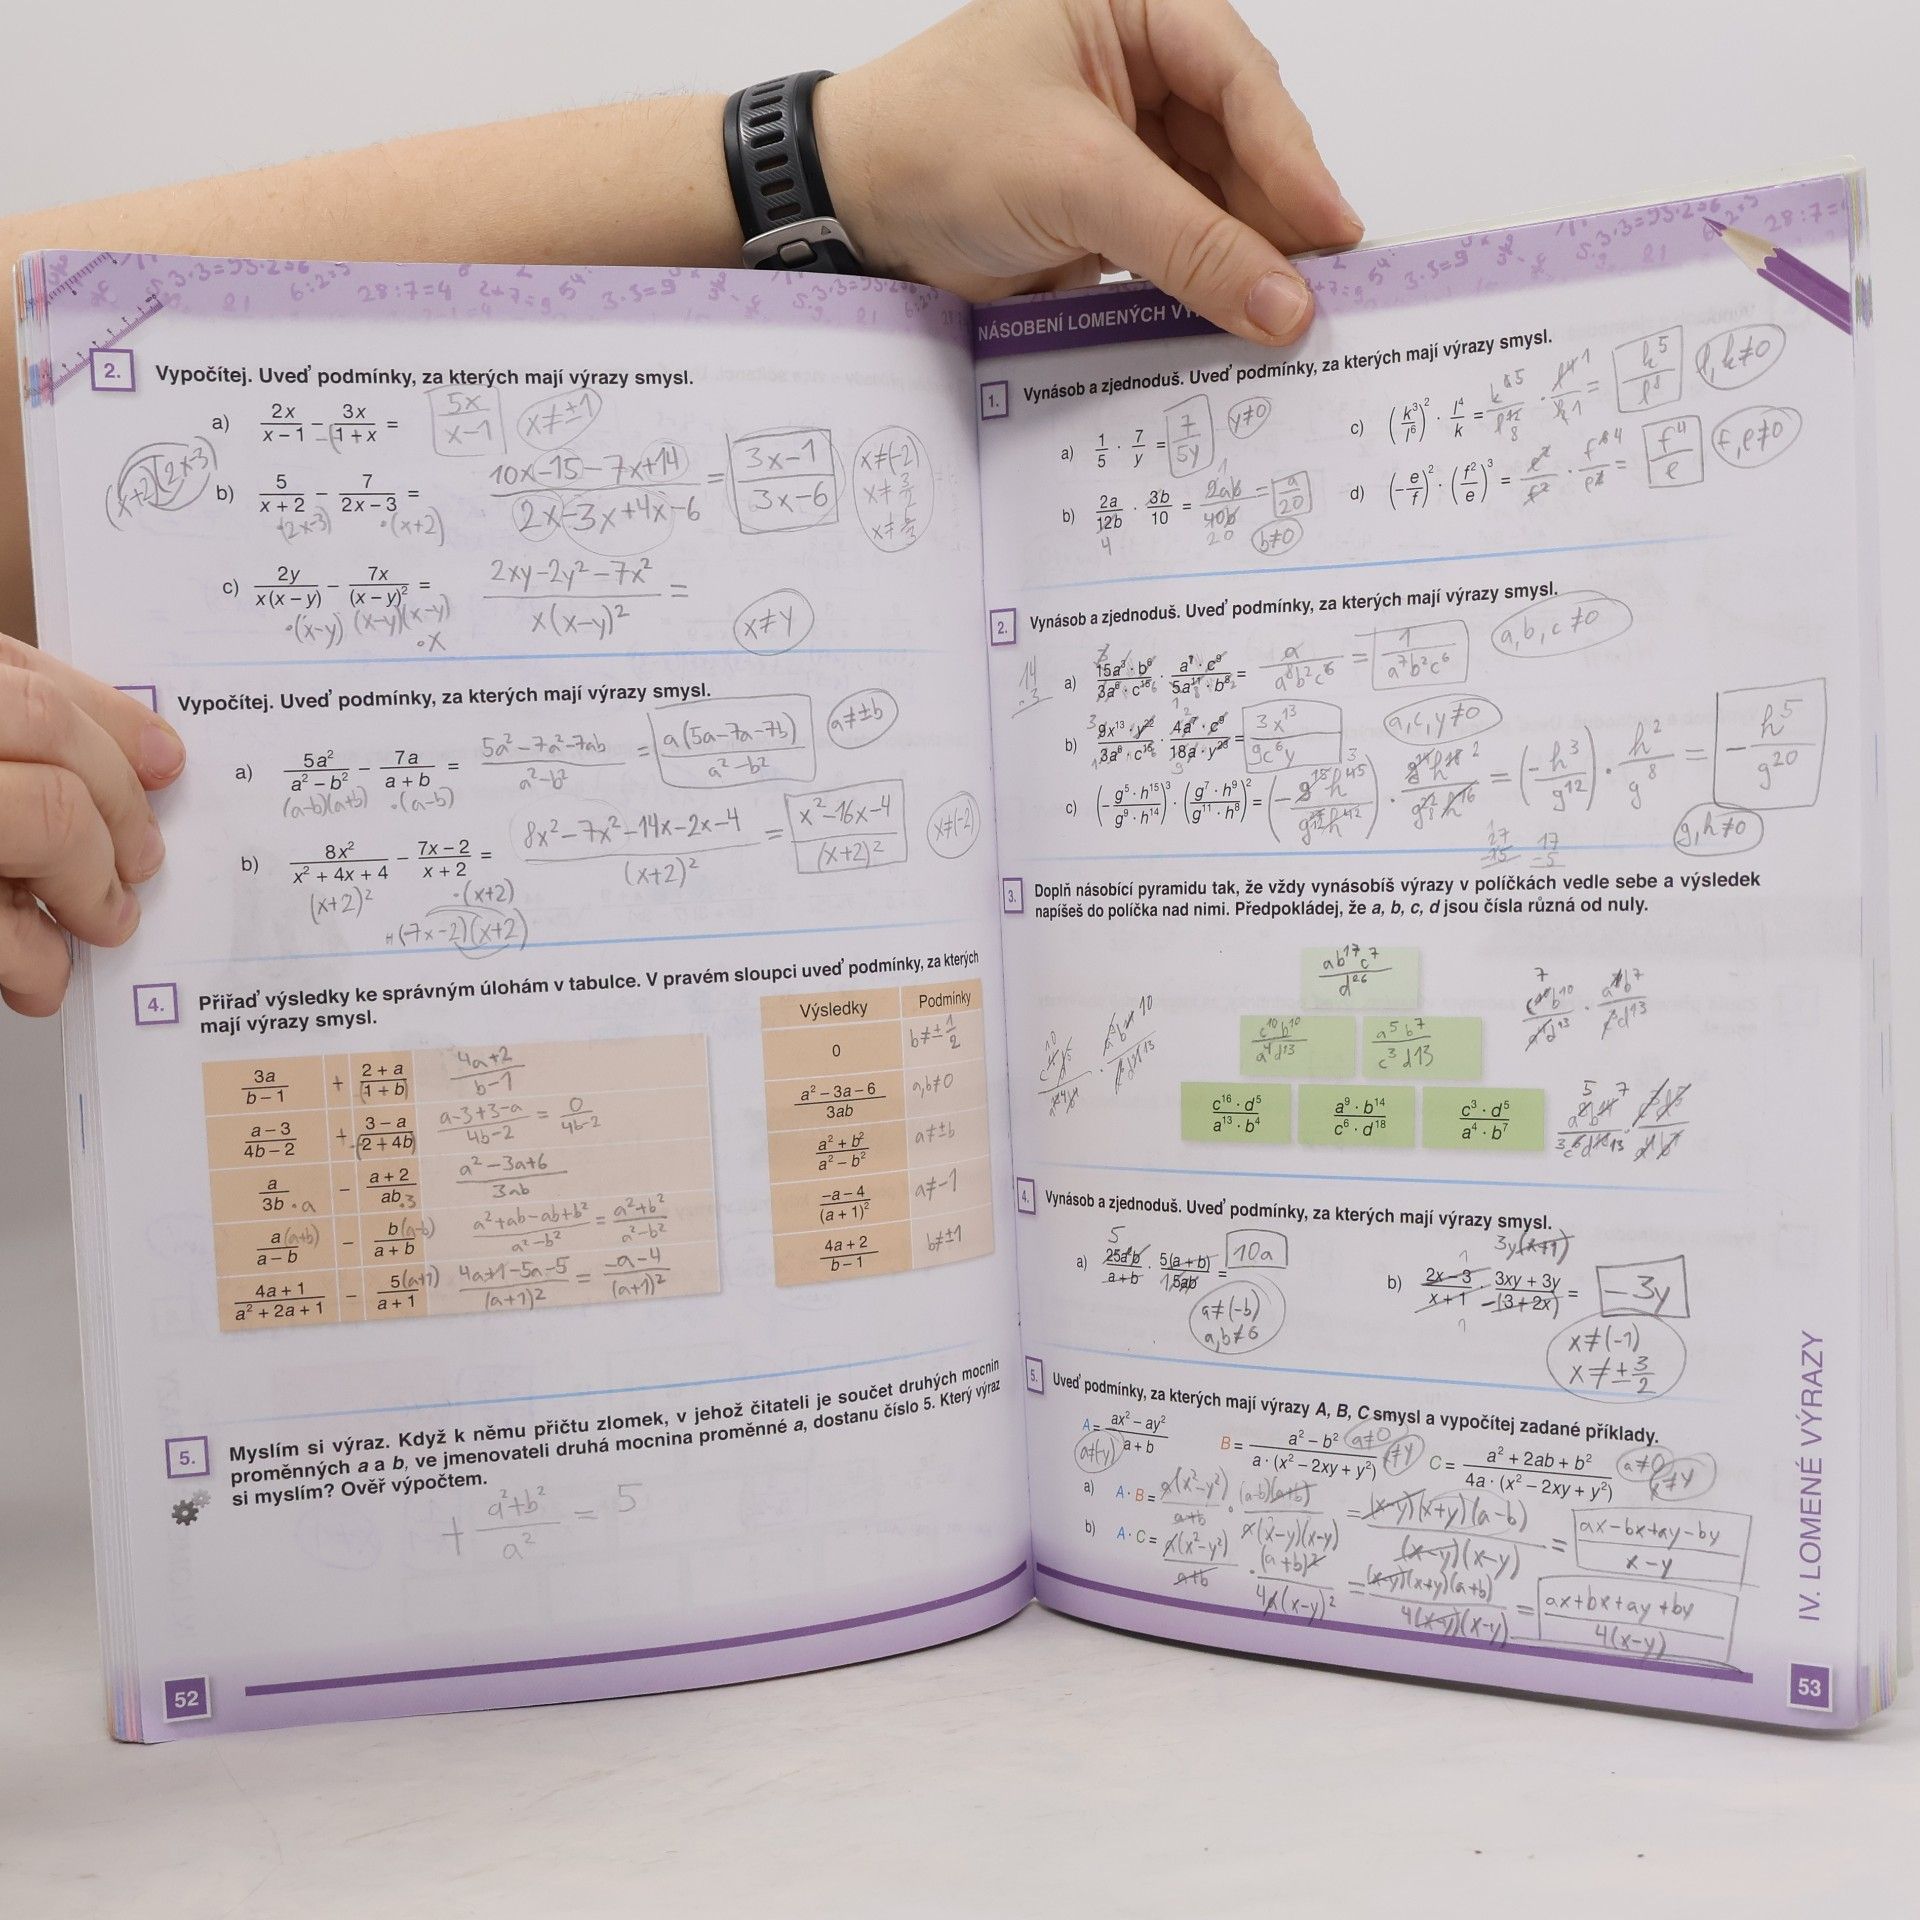 2. Vypočítej. Uveď podmínky, za kterých mají výrazy smysl.
a) 2x/(x – 1) – 3x/(1 + x) = 5x/(x–1) x≠±1
(x+2)(2x-3)
b) 5/(x + 2) – 7/(2x – 3) = (10x–15–7x+14)/(2x–3x+4x–6) = (3x–1)/(3x–6) x≠(-2)
·(2x-3) ·(x+2)
c) 2y/(x(x – y)) – 7x/(x – y)² = (2xy–2y²–7x²)/(x(x–y)²) = x≠y
·(x-y) (x-y)(x-y) ·x
Vypočítej. Uveď podmínky, za kterých mají výrazy smysl.
a) 5a²/(a² – b²) – 7a/(a + b) = (5a²–7a²–7ab)/(a²–b²) = a(5a–7a–7b)/(a²–b²) a≠±b
(a-b)(a+b) ·(a-b)
b) 8x²/(x² + 4x + 4) – (7x – 2)/(x + 2) = (8x²–7x²–14x–2x–4)/(x+2)² = (x²–16x–4)/(x+2)² x≠(-2)
(x+2)² ·(x+2)
(-7x-2)(x+2)
4. Přiřaď výsledky ke správným úlohám v tabulce. V pravém sloupci uveď podmínky, za kterých
mají výrazy smysl.
Výsledky Podmínky
0 b≠±1/2
(a² – 3a – 6)/3ab a,b≠0
(a² + b²)/(a² – b²) a≠±b
(–a – 4)/(a + 1)² a≠-1
(4a + 2)/(b – 1) b≠±1
3a/(b – 1) + (2 + a)/(1 + b) (4a+2)/(b-1)
(a – 3)/(4b – 2) + (3 – a)/(-2 + 4b) (a-3+3-a)/(4b-2) = 0/(4b-2)
a/3b ·a – (a + 2)/ab ·3 (a²–3a+6)/3ab
a(a+b)/(a – b) – b(a-b)/(a + b) (a²+ab–ab+b²)/(a²–b²) = (a²+b²)/(a²–b²)
(4a + 1)/(a² + 2a + 1) – 5(a+1)/(a + 1) (4a+1–5a–5)/(a+1)² = (–a–4)/(a+1)²
5. Myslím si výraz. Když k němu přičtu zlomek, v jehož čitateli je součet druhých mocnin
proměnných a a b, ve jmenovateli druhá mocnina proměnné a, dostanu číslo 5. Který výraz
si myslím? Ověř výpočtem.
+ (a²+b²)/a² = 5
52
NÁSOBENÍ LOMENÝCH
1. Vynásob a zjednoduš. Uveď podmínky, za kterých mají výrazy smysl.
a) 1/5 · 7/y = 7/5y y≠0
b) 2a/12b · 3b/10 = 2ab/40b = a/20 b≠0
c) (k³/l⁶)² · l⁴/k = k⁵/l⁸ l,k≠0
d) (–e/f)² · (f²/e)³ = f⁴/e f,e≠0
2. Vynásob a zjednoduš. Uveď podmínky, za kterých mají výrazy smysl.
a) = 1/a⁷b²c⁶ a,b,c≠0
b) = 3x¹³/9c⁶y a,c,y≠0
c) (–g⁵ · h¹⁵/g⁹ · h¹⁴)³ · (g⁷ · h⁹/g¹¹ · h⁸)² = (–h³/g¹²) · h²/g⁸ = –h⁵/g²⁰
g,h≠0
3. Doplň násobící pyramidu tak, že vždy vynásobíš výrazy v políčkách vedle sebe a výsledek
napíšeš do políčka nad nimi. Předpokládej, že a, b, c, d jsou čísla různá od nuly.
ab¹⁷c⁷/d²⁶
c¹⁰b¹⁰/a⁴d¹³ a⁵b⁷/c³d13
c¹⁶ · d⁵/a¹³ · b⁴ a⁹ · b¹⁴/c⁶ · d¹⁸ c³ · d⁵/a⁴ · b⁷
4. Vynásob a zjednoduš. Uveď podmínky, za kterých mají výrazy smysl.
a) 10a
a≠(-b)
b) (2x – 3)/(x + 1) · (3xy + 3y)/-(3 + 2x) = –3y
x≠(-1)
x≠±3/2
5. Uveď podmínky, za kterých mají výrazy A, B, C smysl a vypočítej zadané příklady.
A = (ax² – ay²)/(a + b) B = (a² – b²)/(a · (x² – 2xy + y²)) C = (a² + 2ab + b²)/(4a · (x² – 2xy + y²))
a) A · B = a(x²–y²)/(a+b) · (a-b)(a+b)/a(x–y)(x–y) = (x–y)(x+y)(a–b)/(x–y)(x–y) = (ax–bx+ay–by)/(x–y)
b) A · C = a(x²–y²)/(a+b) · (a+b)²/4a(x–y)² = (x–y)(x+y)(a+b)/4(x–y)(x–y) = (ax+bx+ay+by)/4(x–y)
IV. LOMENÉ VÝRAZY
53